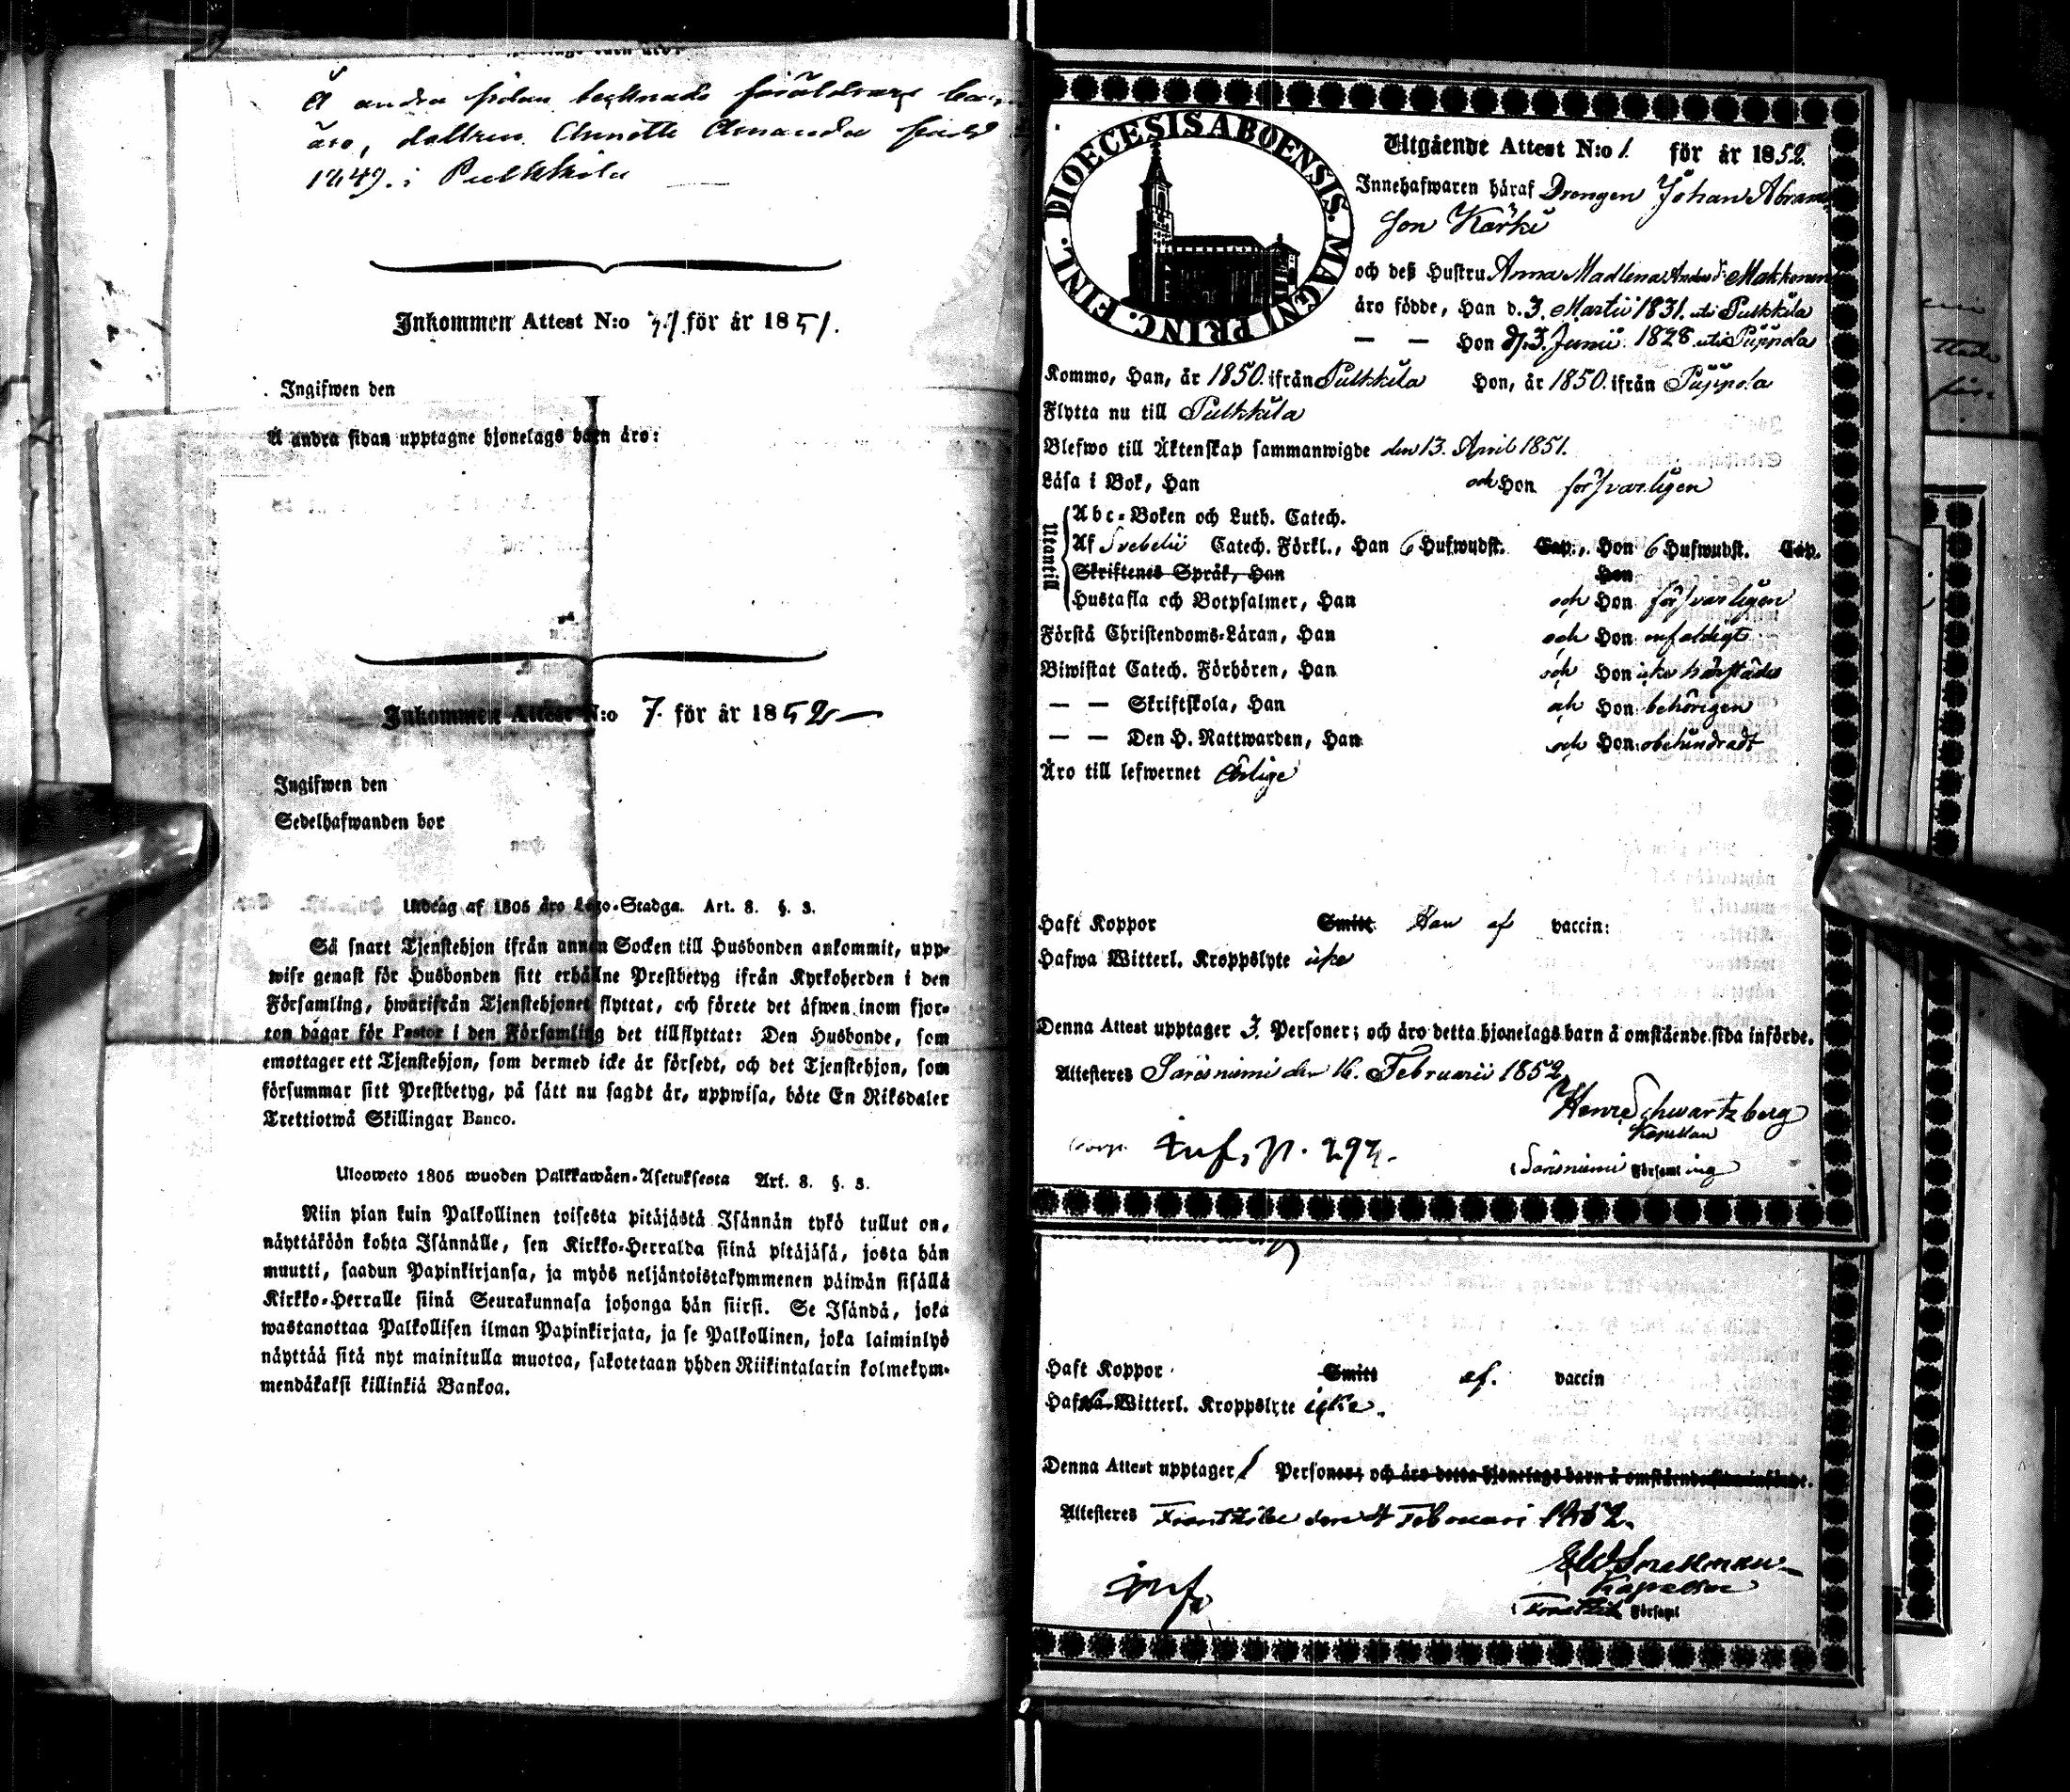 Å andra sidan tecknade föräldrars barn
äro, dottren Annette Amanda född
1849. i Pulkkila
Inkommen Attest N:o för år 1851.
Ingifwen den
Å andra sidan upptagne hjonelags barn äro:
Inkommen Attest N:o 7. för år 1852
Ingifwen den
Sedelhafwanden bor
Utdrag af 1805 års Lego-Stadga. Art. 8. §. 3.
Så snart Tjenstehjon ifrån annan Socken till Husbonden ankommit, upp-
wise genast för Husbonden sitt erhållne Prestbetyg ifrån Kyrkoherden i den
Församling, hwarifrån Tjenstehjonet flyttat, och förete det äfwen inom fjor-
ton dagar för Pastor i den Församling det tillflyttat: Den Husbonde, som
emottager ett Tjenstehjon, som dermed icke är försedt, och det Tjenstehjon, som
försummar sitt Prestbetyg, på sätt nu sagdt är, uppwisa, böte En Riksdaler
Trettiotwå Skillingar Banco.
Ulosweto 1805 wuoden Palkkawäen-Asetuksesta Art. 8. §. 3.
Niin pian kuin Palkollinen toisesta pitäjästä Isännän tykö tullut on,
näyttäköön kohta Isännälle, sen Kirkko-Herralda siinä pitäjäsä, josta hän
muutti, saadun Papinkirjansa, ja myös neljäntoistakymmenen päiwän sisällä
Kirkko-Herralle siinä Seurakunnasa johonga hän siirsi. Se Isändä, joka
wastanottaa Palkollisen ilman Papinkirjata, ja se Palkollinen, joka laiminlyö
näyttää sitä nyt mainitulla muotoa, sakotetaan yhden Riikintalarin kolmekym-
mendäkaksi killinkiä Bankoa.
DIOECESIS ABOENSIS. MAGNI PRINC. FINL.
Utgående Attest N:o 1. för år 1852.
Innehafwaren häraf Drengen Johan Abrams
son Kärki
och deß Hustru Anna Madlena Andersd:r Makkonen
äro födde, Han d. 3. Martii 1831. uti Pulkkila
— — Hon d. 3. Junii 1828 uti Piippola
Kommo, Han, år 1850. ifrån Pulkkila Hon, år 1850. ifrån Piippola
Flytta nu till Pulkkila
Blefwo till Äktenskap sammanwigde den 13. April 1851.
Läsa i Bok, Han och Hon försvarligen
Utantill
Abc-Boken och Luth. Catech.
Af Svebelii Catech. Förkl., Han 6 Hufwudst. Cap., Hon 6 Hufwudst. Cap.
Skriftenes Språk, Han Hon
Hustafla och Botpsalmer, Han och Hon försvarligen
Förstå Christendoms-Läran, Han och Hon enfaldigt
Biwistat Catech. Förhören, Han och Hon icke härstädes
— — Skriftskola, Han och Hon behörigen
— — Den H. Nattwarden, Han och Hon obehindradt
Äro till lefwernet ärlige
Haft Koppor Smitt Han af vaccin:
Hafwa Witterl. Kroppslyte icke
Denna Attest upptager 3. Personer; och äro detta hjonelags barn å omstående sida införde.
Attesteras Säräisniemi den 16. Februarii 1852
Henr. Schwartzberg
Kapellan
i Säräisniemi Församling
inf. p. 292.
Haft Koppor Smitt af. vaccin
Hafwa Witterl. Kroppslyte icke.
Denna Attest upptager 1 Personer; och äro detta hjonelags barn å omstående sida införde.
Attesteras Frantzila den 4 Februari 1852.
Snellman
Kapellan
i Frantzila Församl
inf.